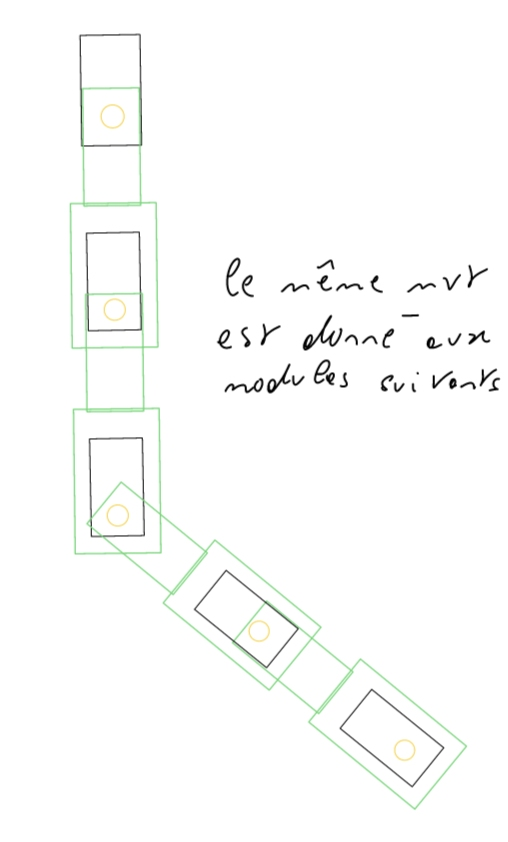 le même mvt
est donné aux
modules suivants